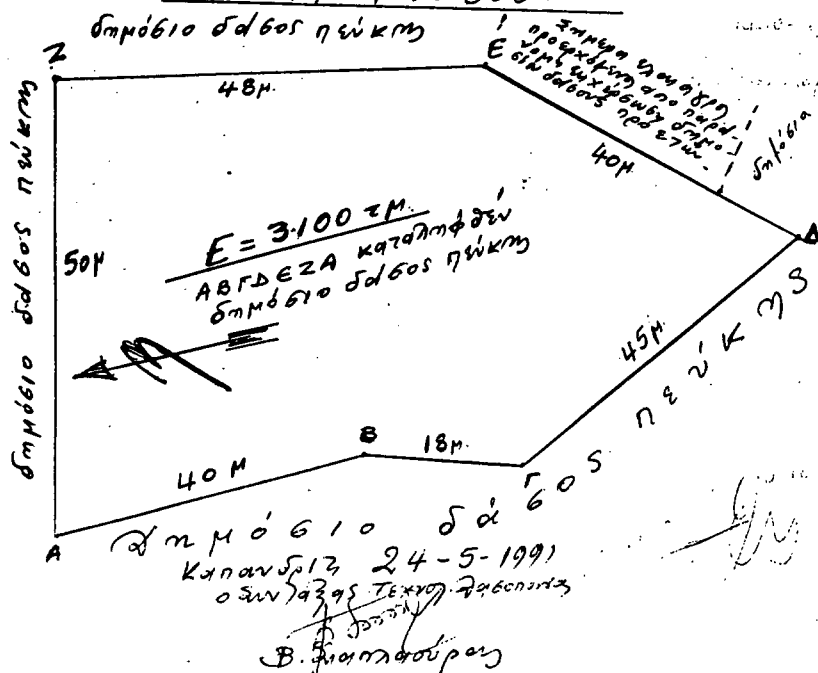 δημόσιο δάσος πεύκης
Ζ
Ε
48μ.
Σήμερα ελαιάγρη
προερχόμενη από παρά-
νομη εκχέρσωση δημο-
σίου δάσους προ ετών.
δημόσια
40μ
Δ
δημόσιο δάσος πεύκης
50μ
Ε = 3.100 τμ.
ΑΒΓΔΕΖΑ καταληφθέν
δημόσιο δάσος πεύκης
45μ.
πεύκης
Β
40 μ
18μ.
Γ
Α
Δημόσιο δάσος
Καπανδρίτι 24-5-1991
ο συντάξας Τεχνολ. Δασοπονίας